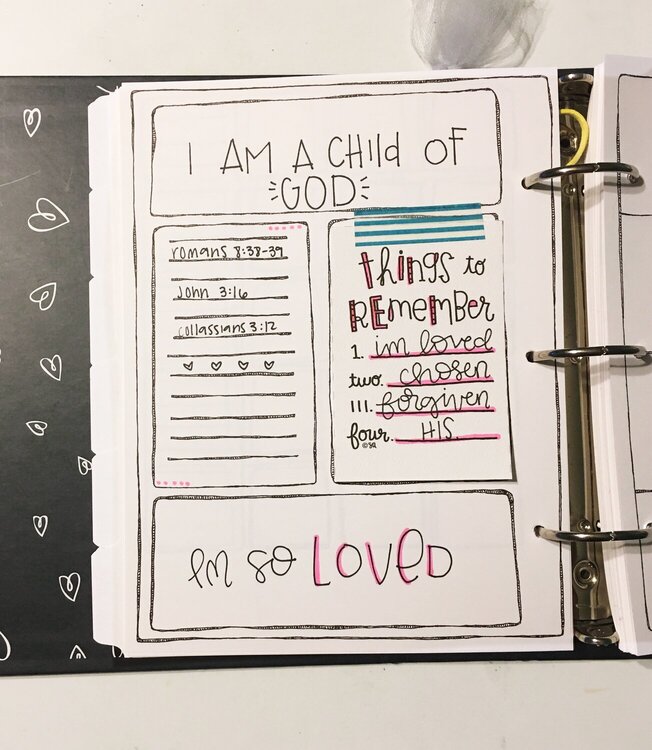 I AM A CHIld OF
GOD
romans 8:38-39
John 3:16
collassians 3:12
things to
REmEmBER
1. im loved
two. chosen
III. forgiven
four. HIS.
©SQ
im so LOVED